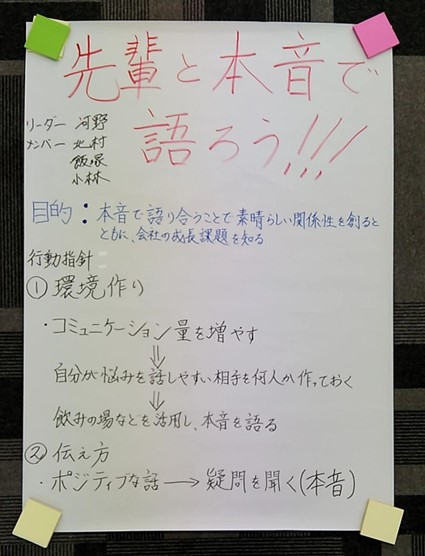 先輩と本音で
語ろう!!!
リーダー 河野
メンバー 北村
飯塚
小林
目的：本音で語り合うことで素晴らしい関係性を創ると
ともに、会社の成長課題を知る
行動指針
① 環境作り
・コミュニケーション量を増やす
⇓
自分が悩みを話しやすい相手を何人か作っておく
⇓
飲みの場などを活用し、本音を語る
② 伝え方
・ポジティブな話 → 疑問を聞く(本音)